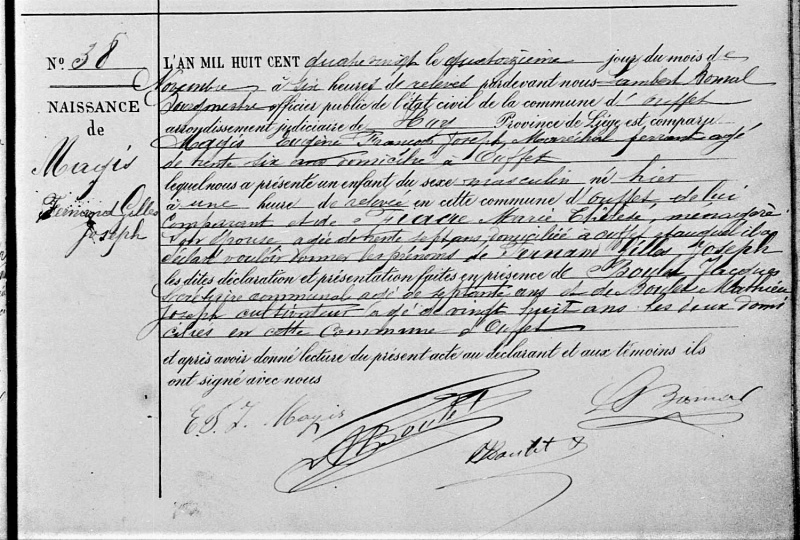 N° 38
NAISSANCE
de
Magis
Fernand Gilles
Joseph
L'AN MIL HUIT CENT quatre vingt le quatorzième jour du mois de
Novembre à six heures de relevée pardevant nous Lambert Bonnal
Bourgmestre officier public de l'état civil de la commune d'Ouffet
arrondissement judiciaire de Huy Province de Liége est comparu
Magis Eugène François Joseph, Maréchal ferrant agé
de trente six ans domicilié à Ouffet
lequel nous a présenté un enfant du sexe masculin né hier
à une heure de relevée en cette commune d'Ouffet, de lui
comparant et de Marie Thérèse, menagère
son épouse agée de trente sept ans, domiciliée à ouffet et auquel il a
déclaré vouloir donner les prénoms de Fernand Gilles Joseph
les dites déclaration et présentation faites en présence de Boulet Jacques
Secrétaire communal agé de septante ans et de Boulet Mathieu
Joseph cultivateur agé de vingt huit ans les deux domi
ciliés en cette Commune d'Ouffet
et après avoir donné lecture du présent acte au déclarant et aux témoins ils
ont signé avec nous
E F J Magis
Boulet
Boulet